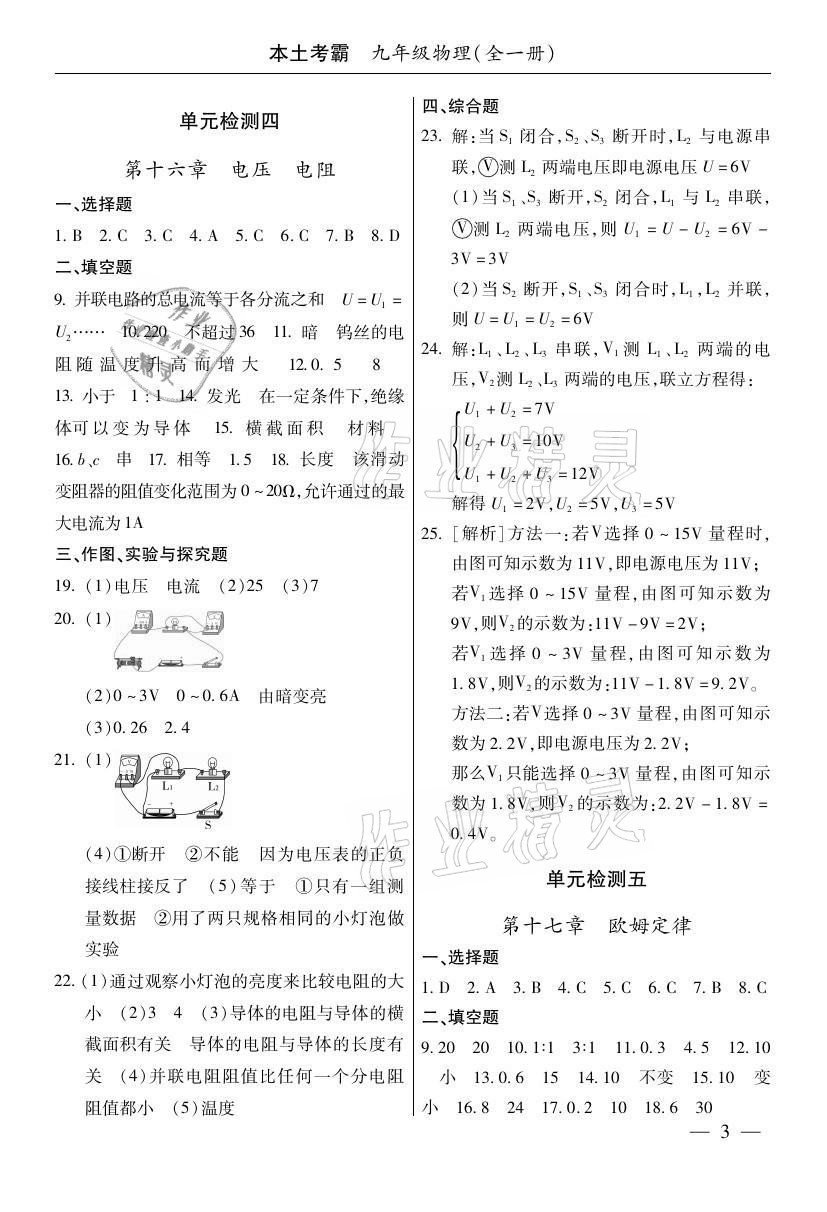 本土考霸 九年级物理(全一册)
单元检测四
第十六章 电压 电阻
一、选择题
1. B 2. C 3. C 4. A 5. C 6. C 7. B 8. D
二、填空题
9. 并联电路的总电流等于各分流之和 U = U₁ =
U₂…… 10. 220 不超过 36 11. 暗 钨丝的电
阻随温度升高而增大 12. 0. 5 8
13. 小于 1 : 1 14. 发光 在一定条件下,绝缘
体可以变为导体 15. 横截面积 材料
16. b、c 串 17. 相等 1. 5 18. 长度 该滑动
变阻器的阻值变化范围为 0 ~ 20Ω,允许通过的最
大电流为 1A
三、作图、实验与探究题
19. (1)电压 电流 (2)25 (3)7
20. (1)
(2)0 ~ 3V 0 ~ 0. 6A 由暗变亮
(3)0. 26 2. 4
21. (1)
L₁ L₂
S
(4)①断开 ②不能 因为电压表的正负
接线柱接反了 (5)等于 ①只有一组测
量数据 ②用了两只规格相同的小灯泡做
实验
22. (1)通过观察小灯泡的亮度来比较电阻的大
小 (2)3 4 (3)导体的电阻与导体的横
截面积有关 导体的电阻与导体的长度有
关 (4)并联电阻阻值比任何一个分电阻
阻值都小 (5)温度
四、综合题
23. 解:当 S₁ 闭合,S₂、S₃ 断开时,L₂ 与电源串
联,Ⓥ测 L₂ 两端电压即电源电压 U = 6V
(1)当 S₁、S₃ 断开,S₂ 闭合,L₁ 与 L₂ 串联,
Ⓥ测 L₂ 两端电压,则 U₁ = U - U₂ = 6V -
3V = 3V
(2)当 S₂ 断开,S₁、S₃ 闭合时,L₁,L₂ 并联,
则 U = U₁ = U₂ = 6V
24. 解:L₁、L₂、L₃ 串联,V₁ 测 L₁、L₂ 两端的电
压,V₂测 L₂、L₃ 两端的电压,联立方程得:
U₁ + U₂ = 7V
U₂ + U₃ = 10V
U₁ + U₂ + U₃ = 12V
解得 U₁ = 2V,U₂ = 5V,U₃ = 5V
25. [解析]方法一:若 V 选择 0 ~ 15V 量程时,
由图可知示数为 11V,即电源电压为 11V;
若V₁ 选择 0 ~ 15V 量程,由图可知示数为
9V,则V₂的示数为:11V - 9V = 2V;
若V₁ 选择 0 ~ 3V 量程,由图可知示数为
1. 8V,则V₂的示数为:11V - 1. 8V = 9. 2V。
方法二:若V选择 0 ~ 3V 量程,由图可知示
数为 2. 2V,即电源电压为 2. 2V;
那么V₁只能选择 0 ~ 3V 量程,由图可知示
数为 1. 8V,则V₂ 的示数为:2. 2V - 1. 8V =
0. 4V。
单元检测五
第十七章 欧姆定律
一、选择题
1. D 2. A 3. B 4. C 5. C 6. C 7. B 8. C
二、填空题
9. 20 20 10. 1∶1 3∶1 11. 0. 3 4. 5 12. 10
小 13. 0. 6 15 14. 10 不变 15. 10 变
小 16. 8 24 17. 0. 2 10 18. 6 30
— 3 —
作业精灵
作业精灵